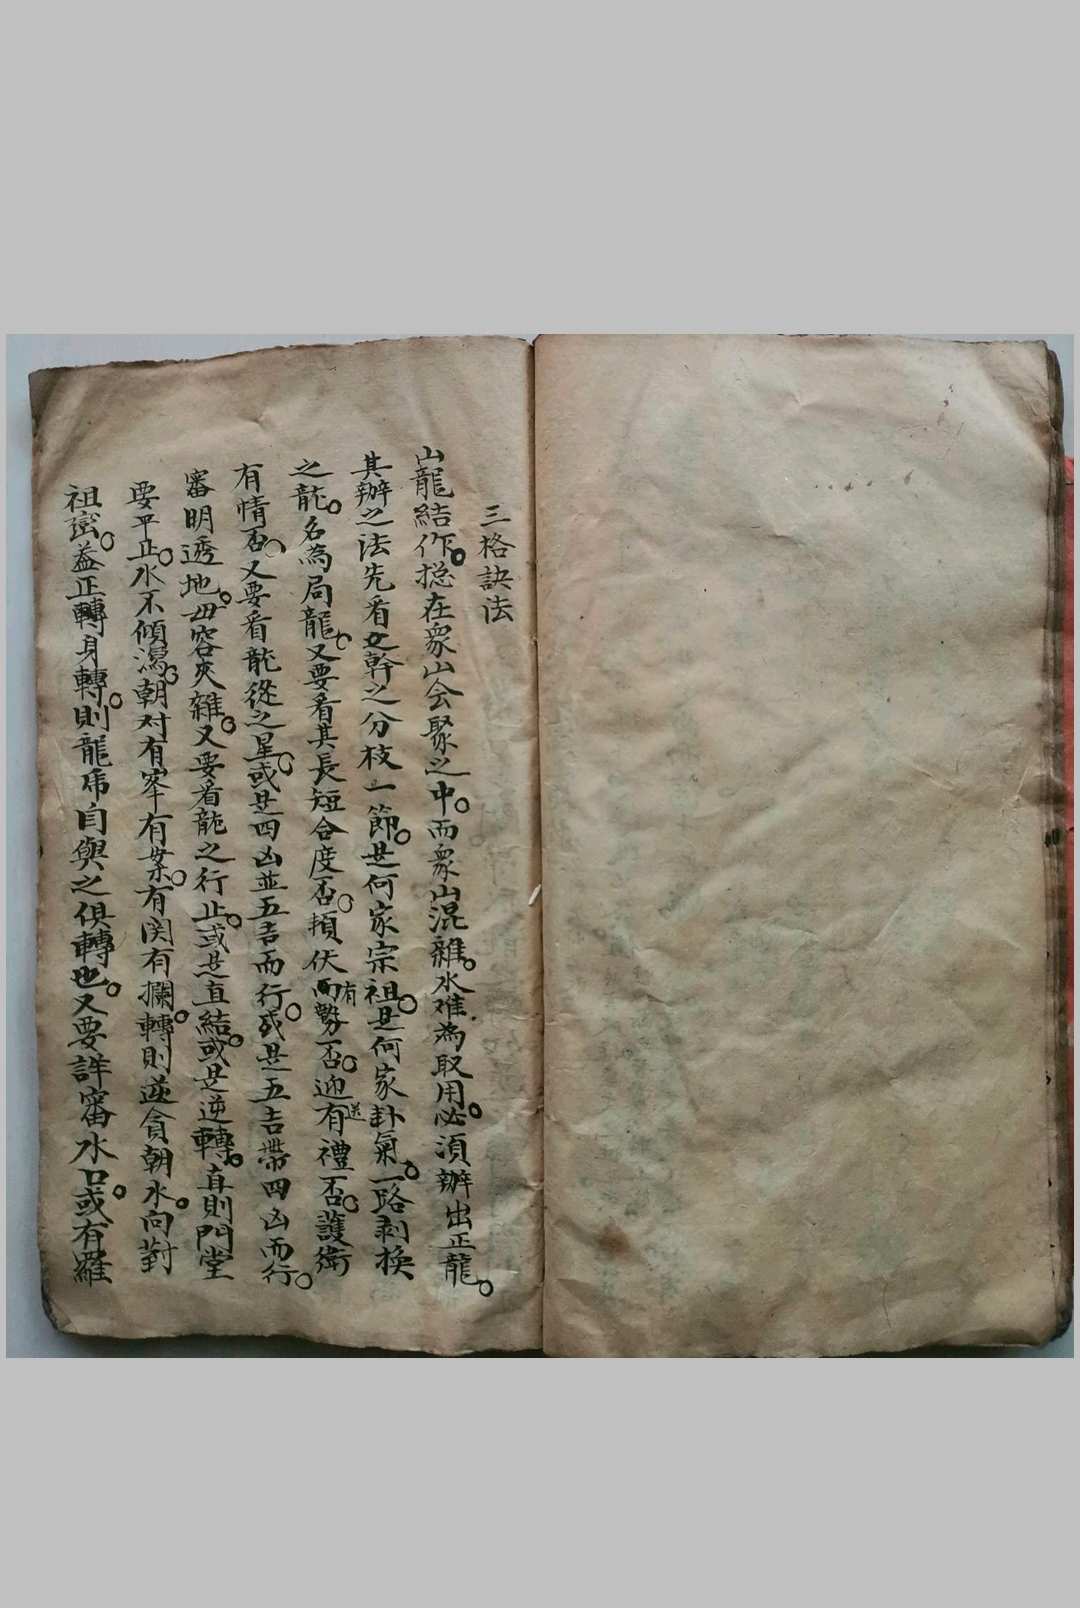 三格訣法
山龍結作。捴在衆山会聚之中。而衆山混雜。水难為取用。必湏辦出正龍。
其辦之法先看文幹之分枝一節。是何家宗祖。是何家卦氣。一路剥换
之龍。名為局龍。又要看其長短合度否。頓伏而有勢否。迎送有禮否。護衛
有情否。又要看龍從之星。或是四凶並五吉而行。或是五吉帶四凶而行。
審明透地。毋容夾雜。又要看龍之行止。或是直結。或是逆轉。直則門堂
要平正。水不傾瀉。朝对有峯有案。有関有攔。轉則逆貪朝水。向對
祖巒。盖正轉身轉。則龍虎自與之俱轉也。又要詳審水口。或有羅